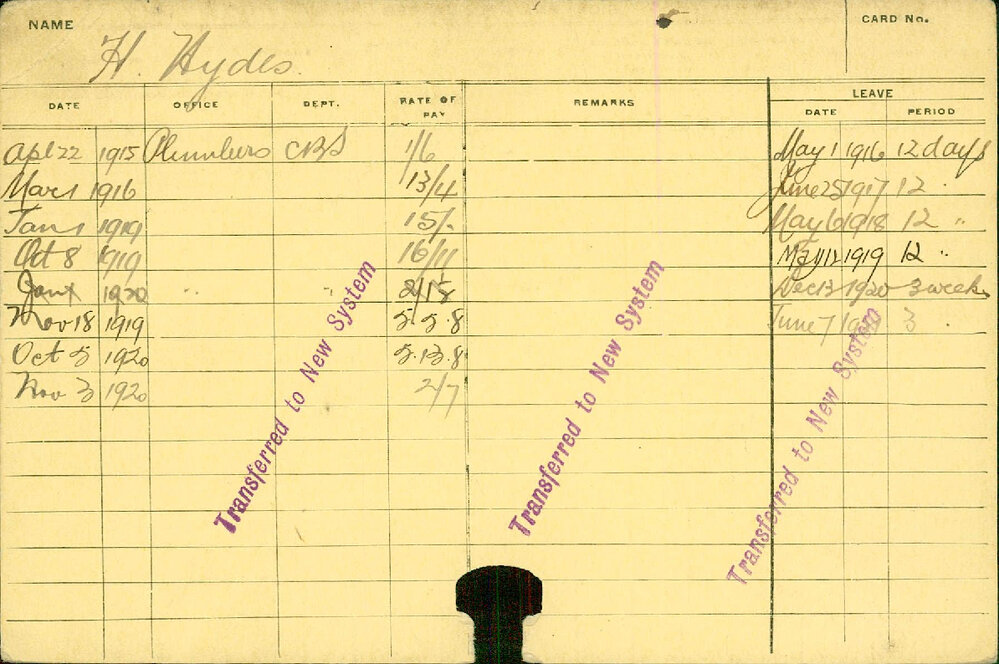 NAME
H. Hydes.
CARD No.
DATE OFFICE DEPT. RATE OF PAY REMARKS LEAVE
DATE PERIOD
Apl 22 1915 Plumbers CBS 1/6 May 1 1916 12 days
Mar 1 1916 13/4 June 25 1917 12 "
Jan 1 1919 15/- May 6 1918 12 "
Oct 8 1919 16/11 May 12 1919 12 "
1920 " " Dec 13 1920 3 weeks
Nov 18 1919 5.5.8 June 7 3 "
Oct 5 1920 5.13.8
Nov 3 1920 2/7
Transferred to New System
Transferred to New System
Transferred to New System